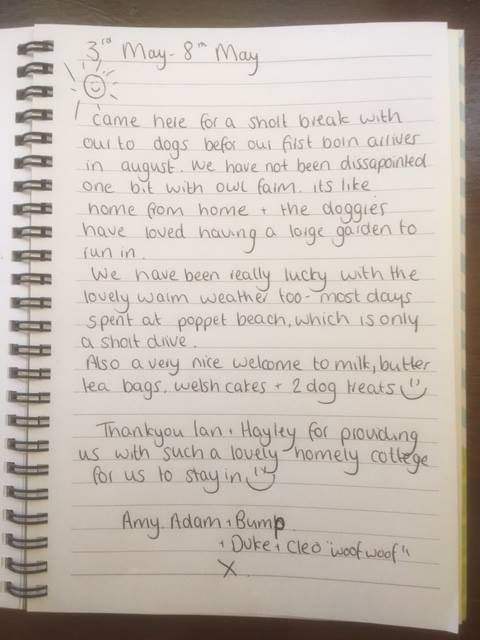 3rd May - 8th May
Came here for a short break with
our to dogs befor our first born arrives
in august. We have not been dissapointed
one bit with owl farm. its like
home from home + the doggies
have loved having a large garden to
run in.
We have been really lucky with the
lovely warm weather too - most days
spent at poppet beach, which is only
a short drive.
Also a very nice welcome to milk, butter
tea bags, welsh cakes + 2 dog treats
Thankyou Ian + Hayley for providing
us with such a lovely homely cottege
for us to stay in
Amy. Adam + Bump
+ Duke + Cleo "woof woof"
X